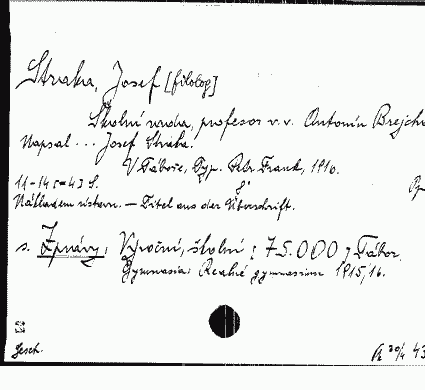 Straka, Josef [filolog]
Školní rada, profesor v.v. Antonín Brejch
Napsal ... Josef Straka.
V Táboře, Petr Frank, 1916.
11-14 = 43 S. 8°
Nákladem ústavu. — Titel aus der Überschrift.
s. Zprávy, Výroční, školní: 75.000, Tábor.
Gymnasia: Reálné gymnasium 1915/16.
Gesch.
20/4 43